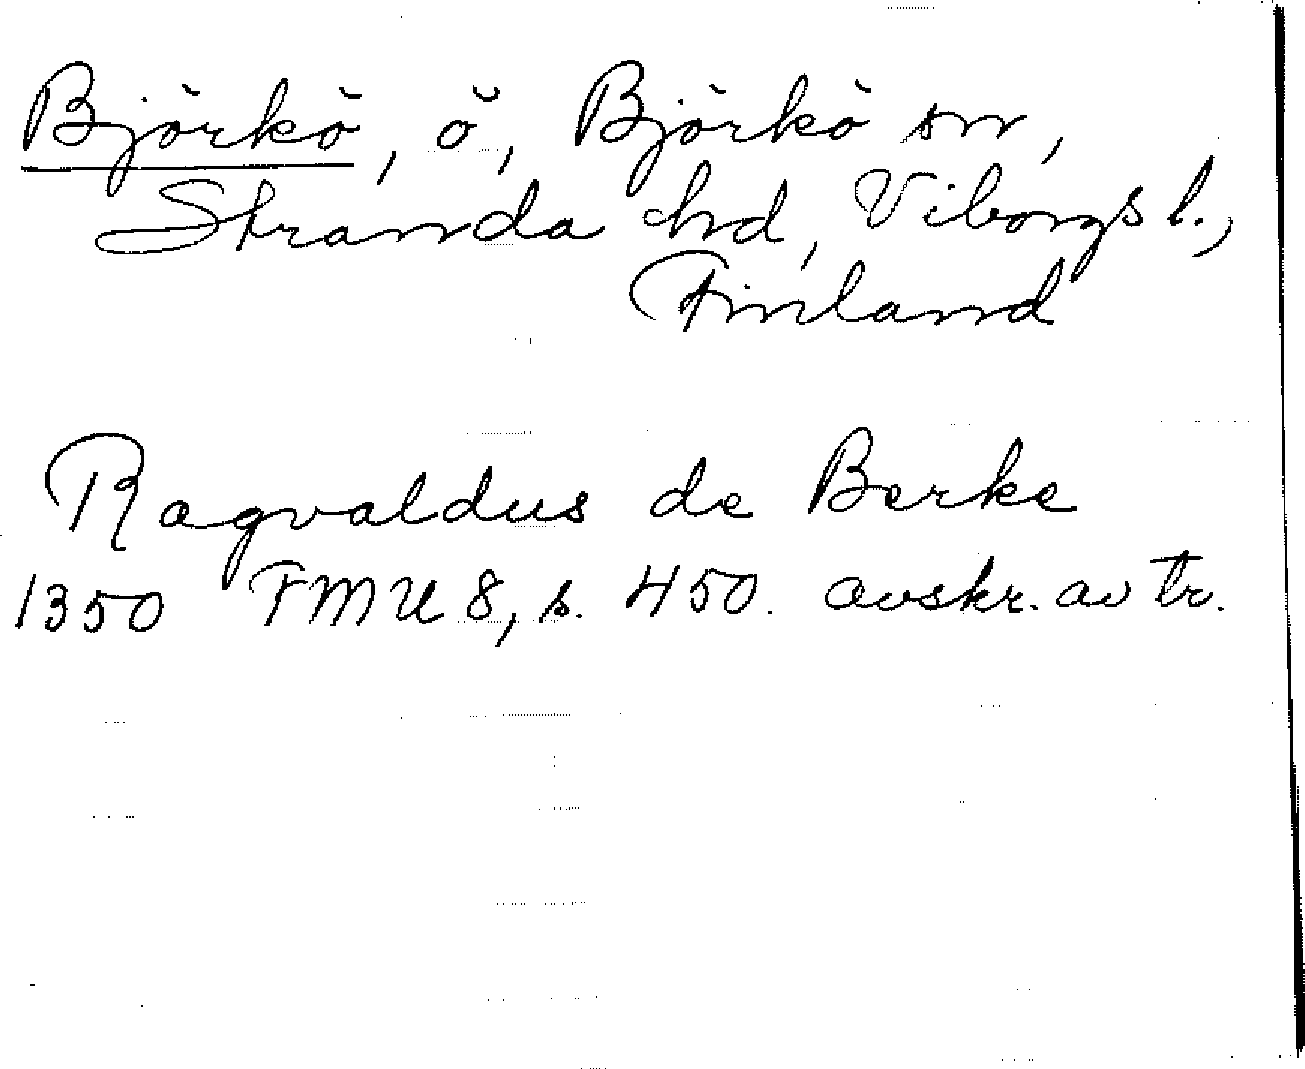 Björkö, ö, Björkö sn,
Stranda hd, Viborgs l.,
Finland
Ragvaldus de Berke
1350 FMU 8, s. 450. avskr. av tr.